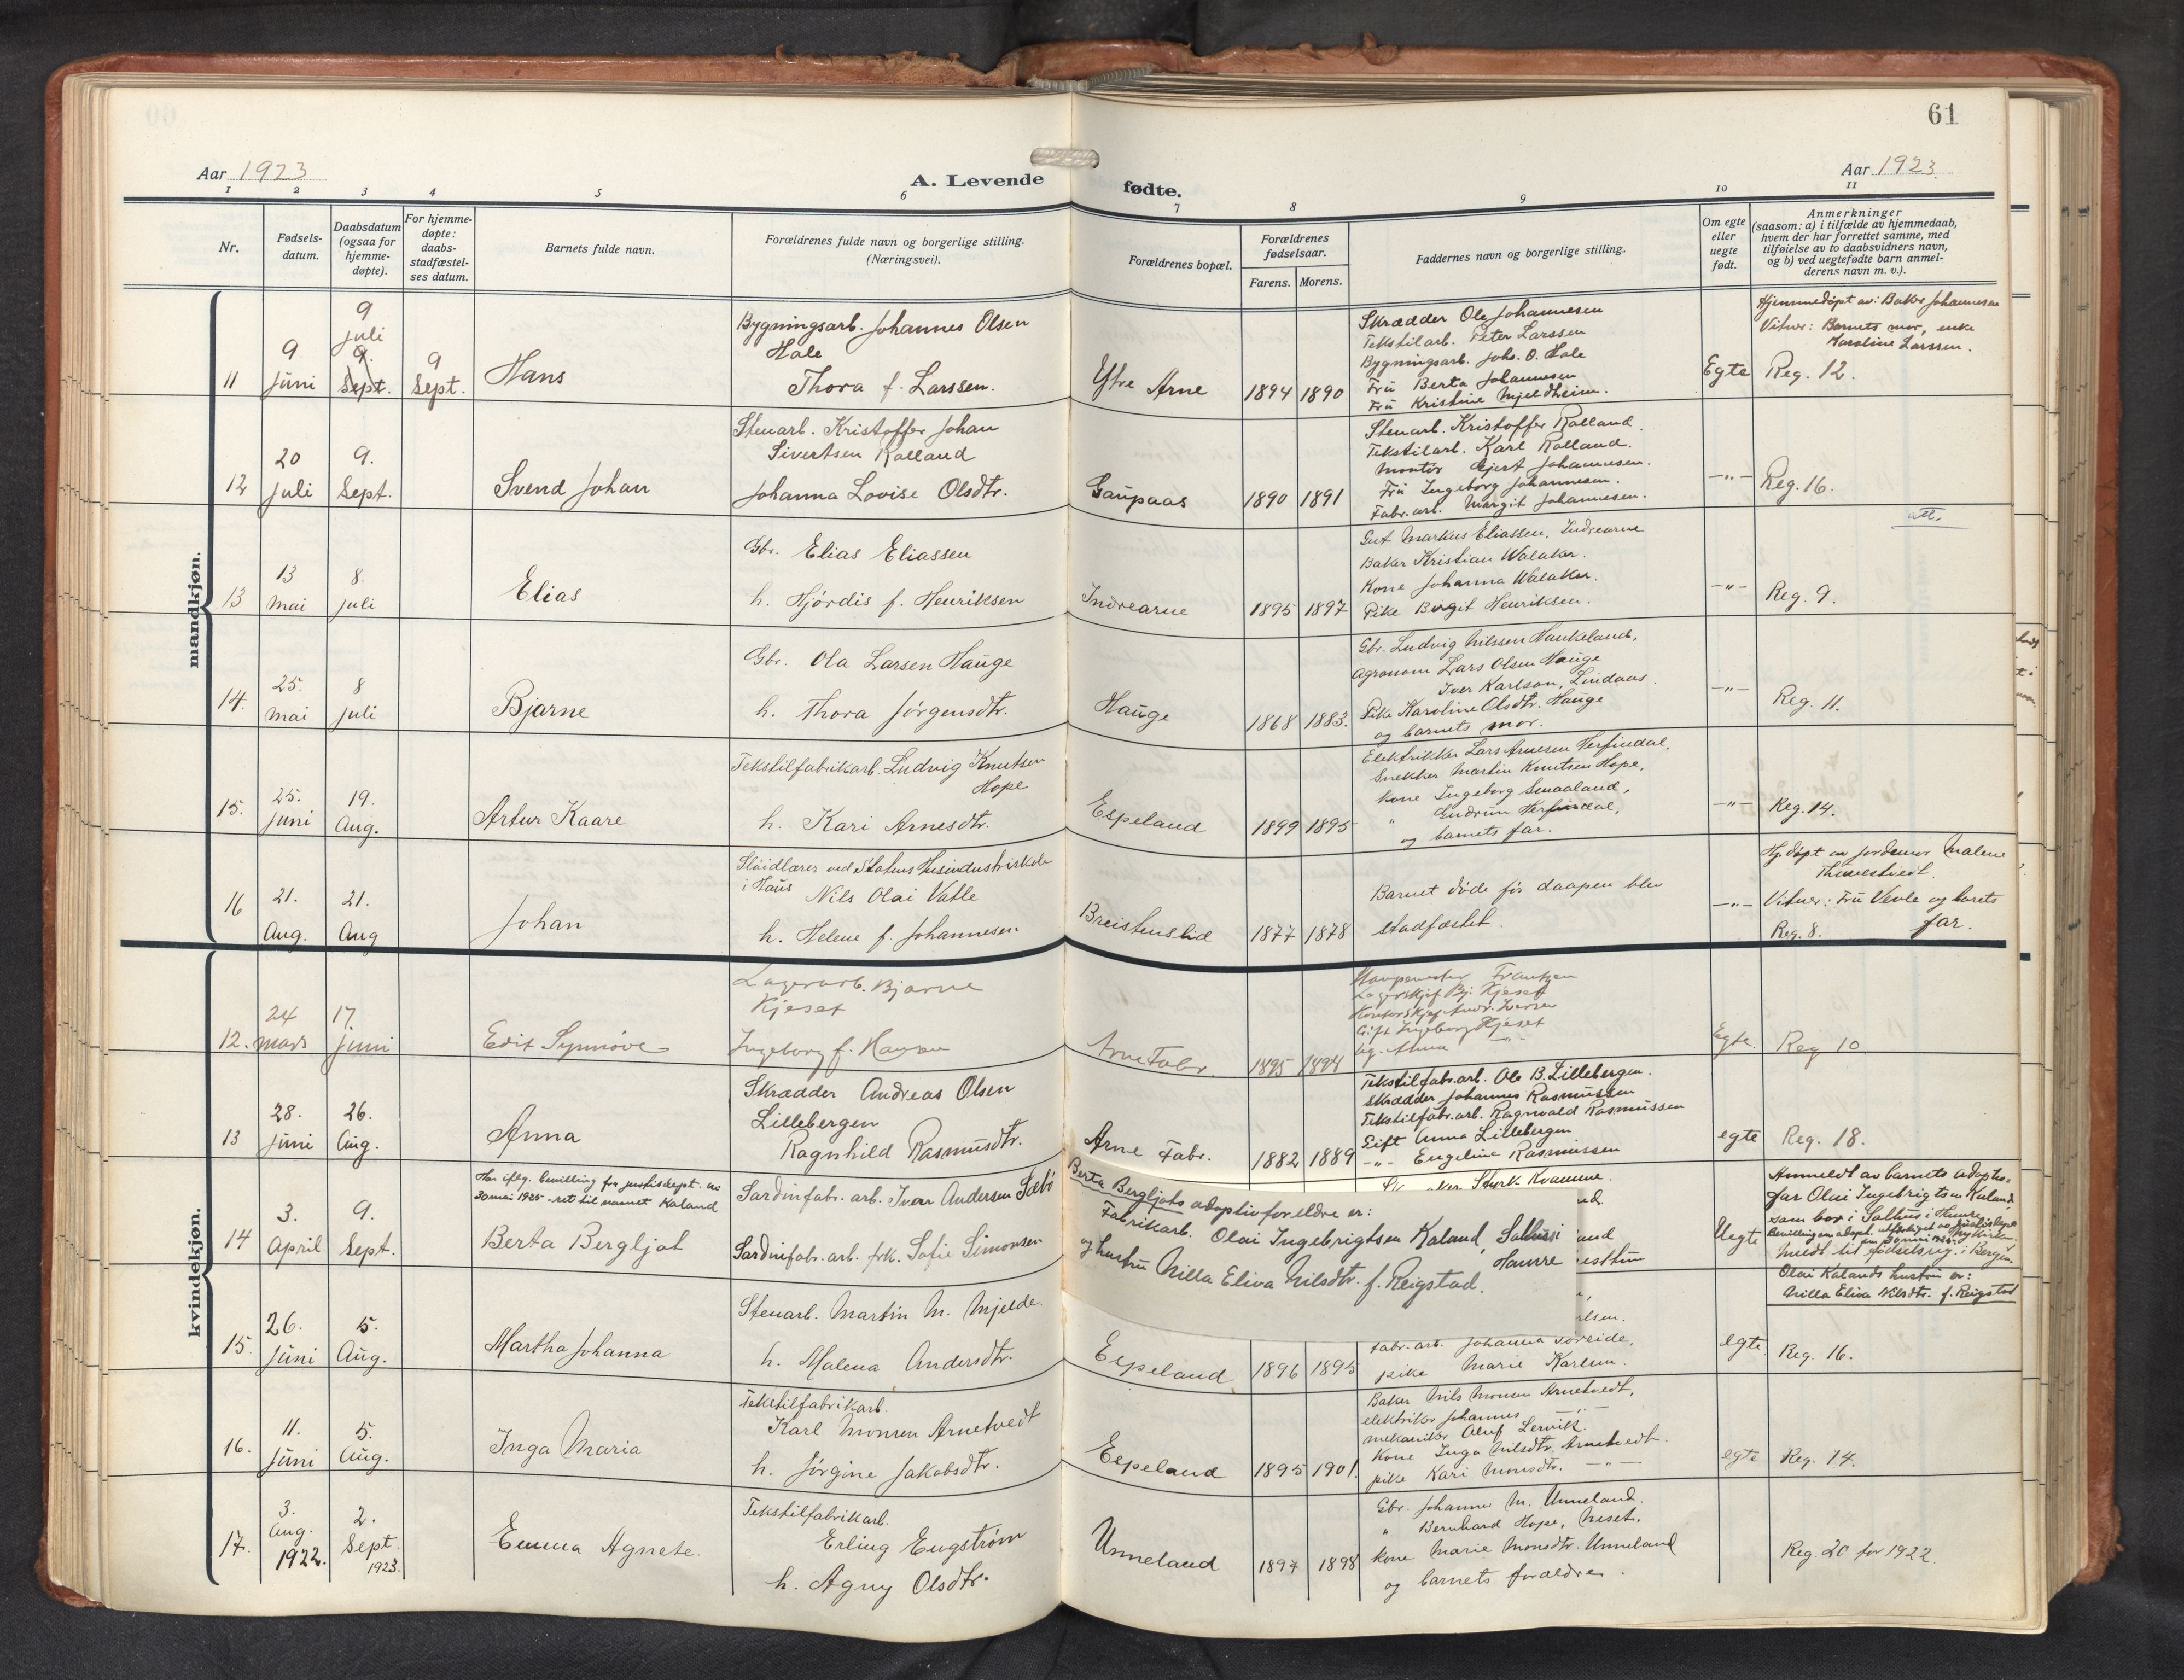 61
Aar 1923
A. Levende fødte.
Aar 1923
1 2 3 4 5 6 7 8 9 10 11
Nr.
Fødsels-
datum.
Daabsdatum
(ogsaa for
hjemme-
døpte).
For hjemme-
døpte:
daabs-
stadfæstel-
ses datum.
Barnets fulde navn.
Forældrenes fulde navn og borgerlige stilling.
(Næringsvei).
Forældrenes bopæl.
Forældrenes
fødselsaar.
Farens. Morens.
Faddernes navn og borgerlige stilling.
Om egte
eller
uegte
født.
Anmerkninger
(saasom: a) i tilfælde av hjemmedaab,
hvem der har forrettet samme, med
tilføielse av to daabsvidners navn,
og b) ved uegtefødte barn anmel-
derens navn m. v.).
mandkjøn.
11
9
juni
9
juli
9.
Sept.
9
Sept.
Hans
Bygningsarb. Johannes Olsen
Hale
Thora f. Larssen.
Ytre Arne
1894 1890
Skrædder Ole Johannesen
Tekstilarb. Peter Larssen
Bygningsarb. Johs. O. Hale
Fru Berta Johannesen
Fru Kristine Mjeldheim.
Egte
Hjemmedøpt av: Baker Johannesen
Vitner: Barnets mor, enke
Karoline Larssen.
Reg. 12.
12
20
juli
9.
Sept.
Svend Johan
Stenarb. Kristoffer Johan
Sivertsen Rolland
Johanna Lovise Olsdtr.
Gaupaas
1890 1891
Stenarb. Kristoffer Rolland.
Tekstilarb. Karl Rolland.
Montør Gjert Johannesen.
Fru Ingeborg Johannesen.
Fabr. arb. Margit Johannesen.
-"-
Reg. 16.
att.
13
13
mai
8.
juli
Elias
Gbr. Elias Eliassen
h. Hjørdis f. Henriksen
Indrearne
1895 1897
Gut Markus Eliassen, Indrearne
Baker Kristian Walaker.
Kone Johanna Walaker.
Pike Birgit Henriksen.
-"-
Reg. 9.
14.
25.
mai
8
juli
Bjarne
Gbr. Ola Larsen Hauge
h. Thora Jørgensdtr.
Hauge
1868 1883.
Gbr. Ludvig Nilssen Haukeland,
Agronom Lars Olsen Hauge
Iver Karlson, Lindaas.
Pike Karoline Olsdtr. Hauge
og barnets mor.
-"-
Reg. 11.
15.
25.
juni
19.
Aug.
Artur Kaare
Tekstilfabrikarb. Ludvig Knutsen
Hope
h. Kari Arnesdtr.
Espeland
1899 1895
Elektrikker Lars Arnesen Herfindal,
Snekker Martin Knutsen Hope,
Kone Ingeborg Smaaland,
" Gudrun Herfindal,
og barnets far.
-"-
Reg. 14.
16
21.
Aug.
21.
Aug
Johan
Sløidlærer ved Statens Husindustriskole
i Haus Nils Olai Vatle
h. Helene f. Johannesen
Breistenslid
1877 1878
Barnet døde før daapen blev
stadfæstet.
-"-
Hj.døpt av jordemor Malene
Vitner: Fru Veole og barets
far.
Reg. 8.
kvindekjøn.
12.
24
mars
17.
juni
Edit Synnøve
Lagerarb. Bjarne
Kjeset
Ingeborg f. Hansen
Arne Fabr.
1895 1894
Frantzen
Lagerskjef Bj. Kjeset
Kontorskjef Andr. Iversen
Gift Ingeborg Kjeset
Ug. Anna -"-
Egte
Reg 10
13
28.
juni
26.
Aug.
Anna
Skrædder Andreas Olsen
Lillebergen
Ragnhild Rasmusdtr.
Arne Fabr.
1882 1889
Tekstilfabr.arb. Ole B. Lillebergen.
Skrædder Johannes Rasmussen
Tekstilfabr.arb. Ragnvald Rasmussen
Gift Anna Lillebergen
-"- Engeline Rasmussen
egte
Reg. 18.
14
3.
April
9.
Sept.
Har iflg. bevilling fra justisdept. av
30 mai 1925 - ret til navnet Kaland
Berta Bergljot
Sardinfabr. arb. Iver Andersen Sæbø
Sardinfabr. arb. frk. Sofie Simonsen
Sturk Kvamme.
Berta Bergljots adoptivforeldre er:
Fabrikarb. Olai Ingebrigtsen Kaland, Salhus i
Hamre
og hustru Nilla Eliva Nilsdtr. f. Reigstad.
Uegte
Anmeldt av barnets adoptiv-
far Olai Ingebrigtsen Kaland,
som bor i Salhus i Hamre.
Meldt til fødselsreg. i Bergen.
Olai Kalands hustru er:
Nilla Elisa Nilsdtr. f. Reigstad
15.
26.
juni
5.
Aug.
Martha Johanna
Stenarb. Martin M. Mjelde
h. Malena Andersdtr.
Espeland
1896 1895
Fabr. arb. Johanna Søreide,
pike Marie Karlsen.
egte
Reg. 16.
16.
11.
juni
5.
Aug.
Inga Maria
Tekstilfabrikarb.
Karl Monsen Arnetvedt
h. Jørgine Jakobsdtr.
Espeland
1895 1901.
Baker Nils Monsen Arnetvedt,
elektriker Johannes -"-
mekaniker Oluf Lervik.
Kone Inga Nilsdtr. Arnetvedt.
pike Kari Monsdtr. -"-
egte
Reg. 14.
17.
3.
Aug.
1922.
2.
Sept.
1923.
Emma Agnete.
Tekstilfabrikarb.
Erling Engstrøm
h. Agny Olsdtr.
Unneland
1897 1898
Gbr. Johannes M. Unneland.
" Bernhard Hope, Neset.
Kone Marie Monsdtr. Unneland
og barnets forældre.
Reg. 20 for 1922.